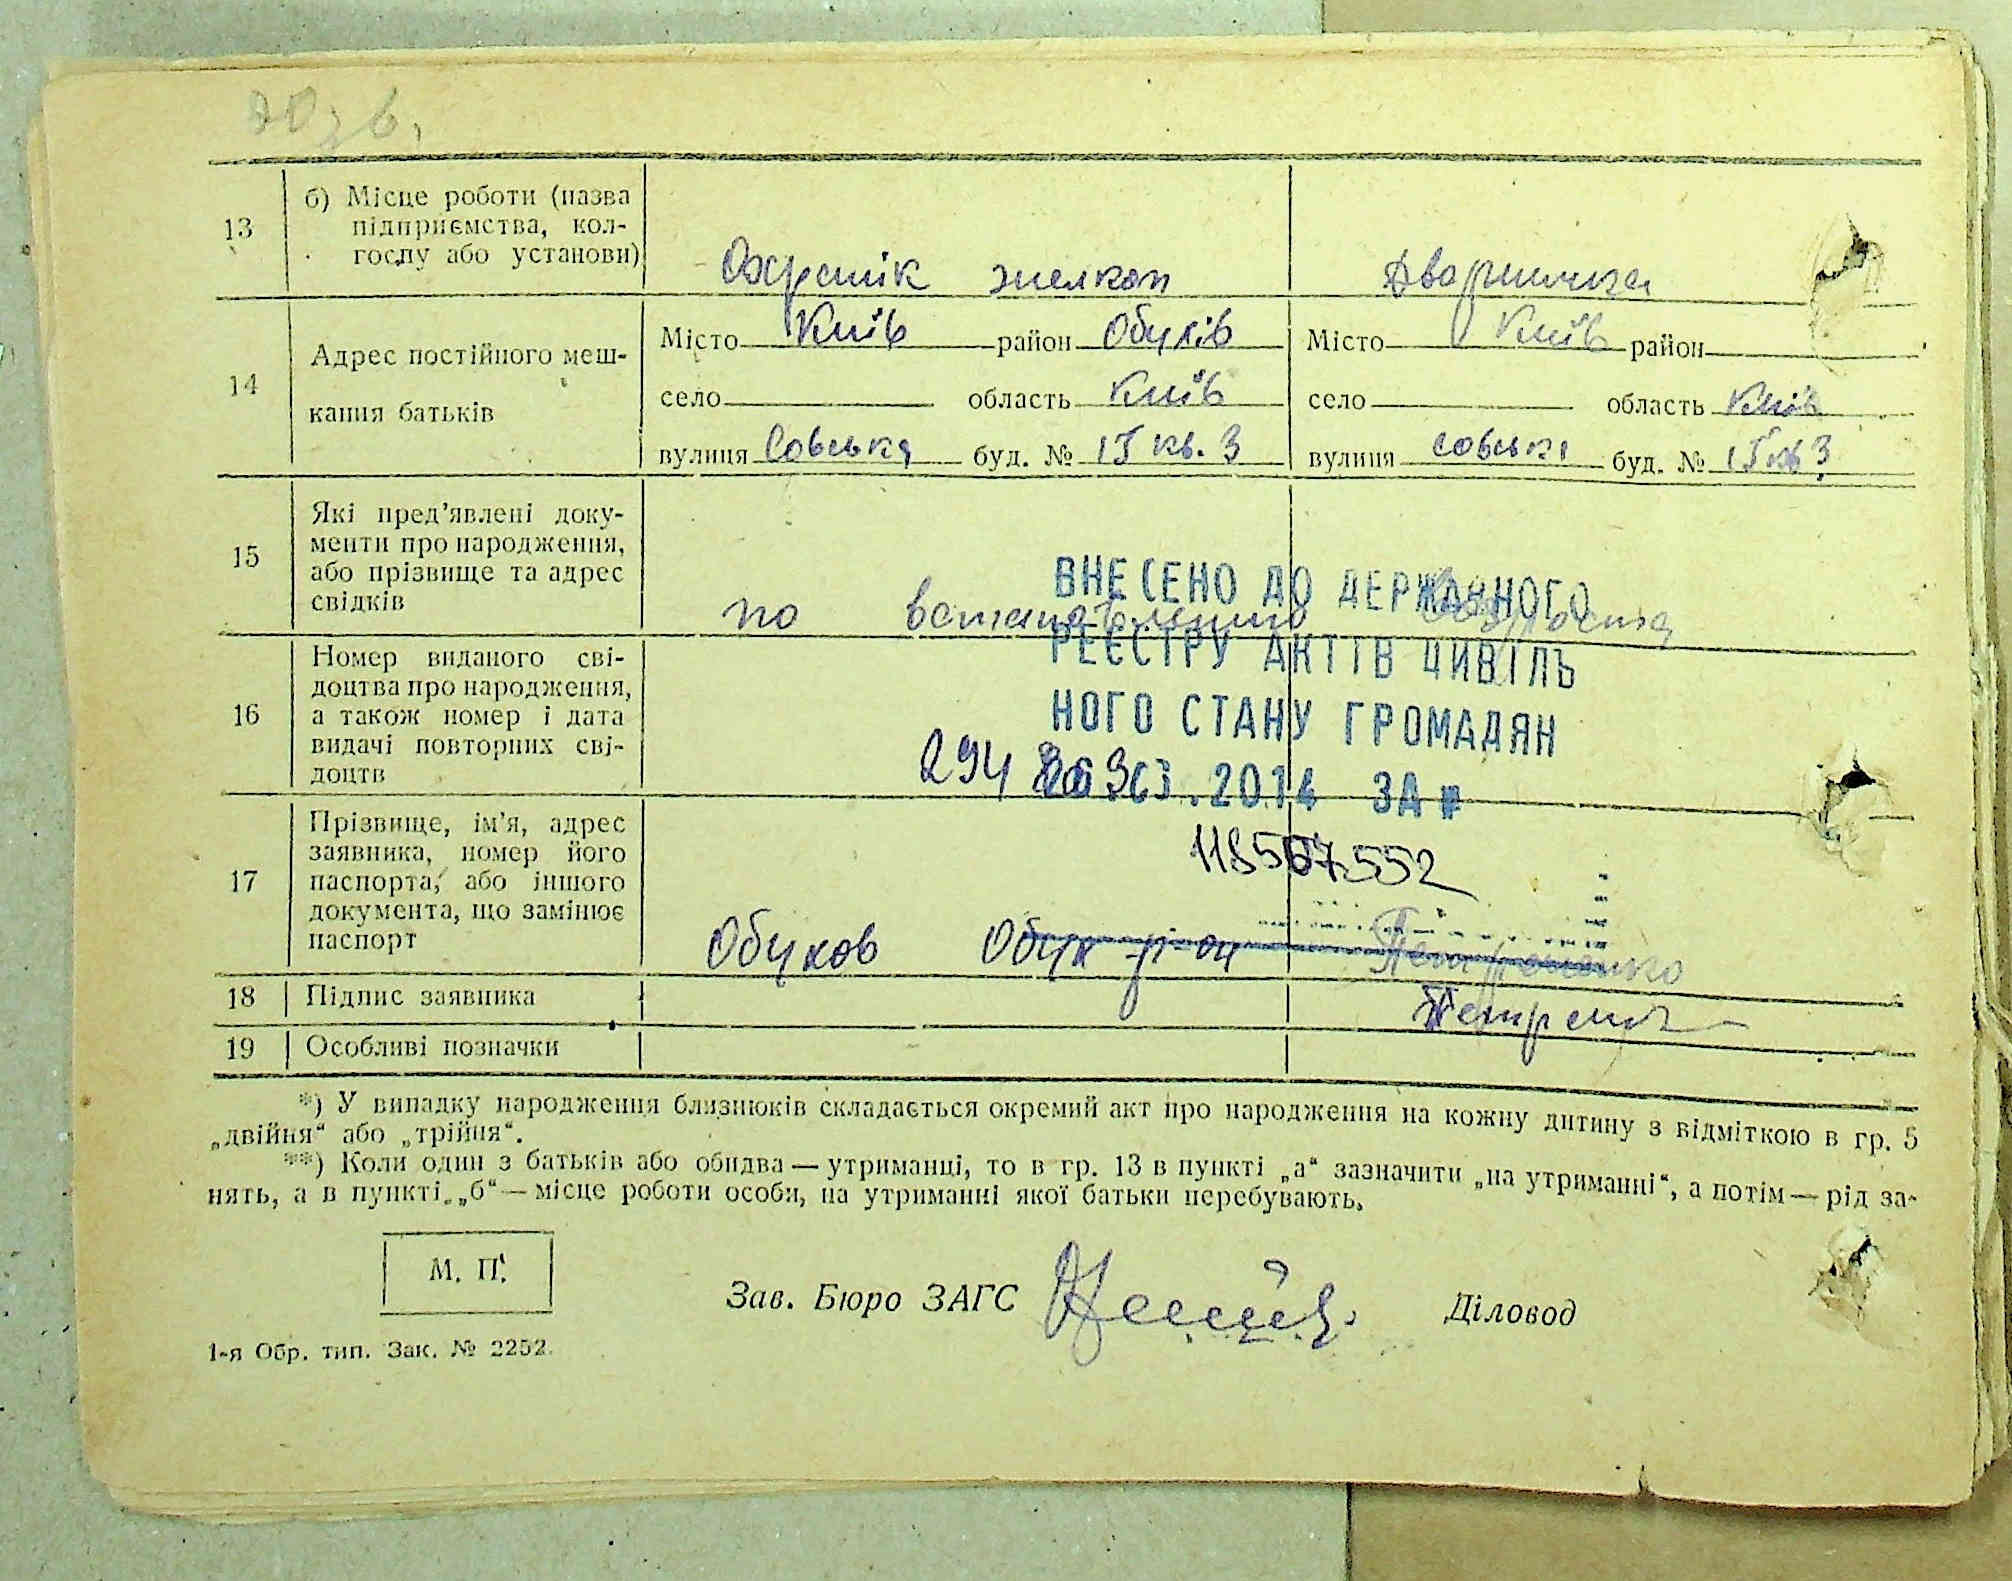 13
б) Місце роботи (назва
підприємства, кол-
госпу або установи)
Охрснік жилкоп
Дворничка
14
Адрес постійного меш-
кання батьків
Місто Київ район Обухів
Місто Київ район
село область Київ
село область Київ
вулиця Совська буд. № 15 кв. 3
вулиця Совська буд. № 15 кв 3
15
Які пред’явлені доку-
менти про народження,
або прізвище та адрес
свідків
по
ВНЕСЕНО ДО ДЕРЖАВНОГО
РЕЄСТРУ АКТІВ ЦИВІЛЬ
НОГО СТАНУ ГРОМАДЯН
.2014 ЗА №
118567552
16
Номер виданого сві-
доцтва про народження,
а також номер і дата
видачі повторних сві-
доцтв
294
17
Прізвище, ім’я, адрес
заявника, номер його
паспорта, або іншого
документа, що замінює
паспорт
Обухов Обух р-он
18
Підпис заявника
19
Особливі позначки
*) У випадку народження близнюків складається окремий акт про народження на кожну дитину з відміткою в гр. 5
„двійня“ або „трійня“.
**) Коли один з батьків або обидва — утриманці, то в гр. 13 в пункті „а“ зазначити „на утриманні“, а потім — рід за-
нять, а в пункті „б“ — місце роботи особи, на утриманні якої батьки перебувають.
М. П.
Зав. Бюро ЗАГС
Діловод
1-я Обр. тип. Зак. № 2252.